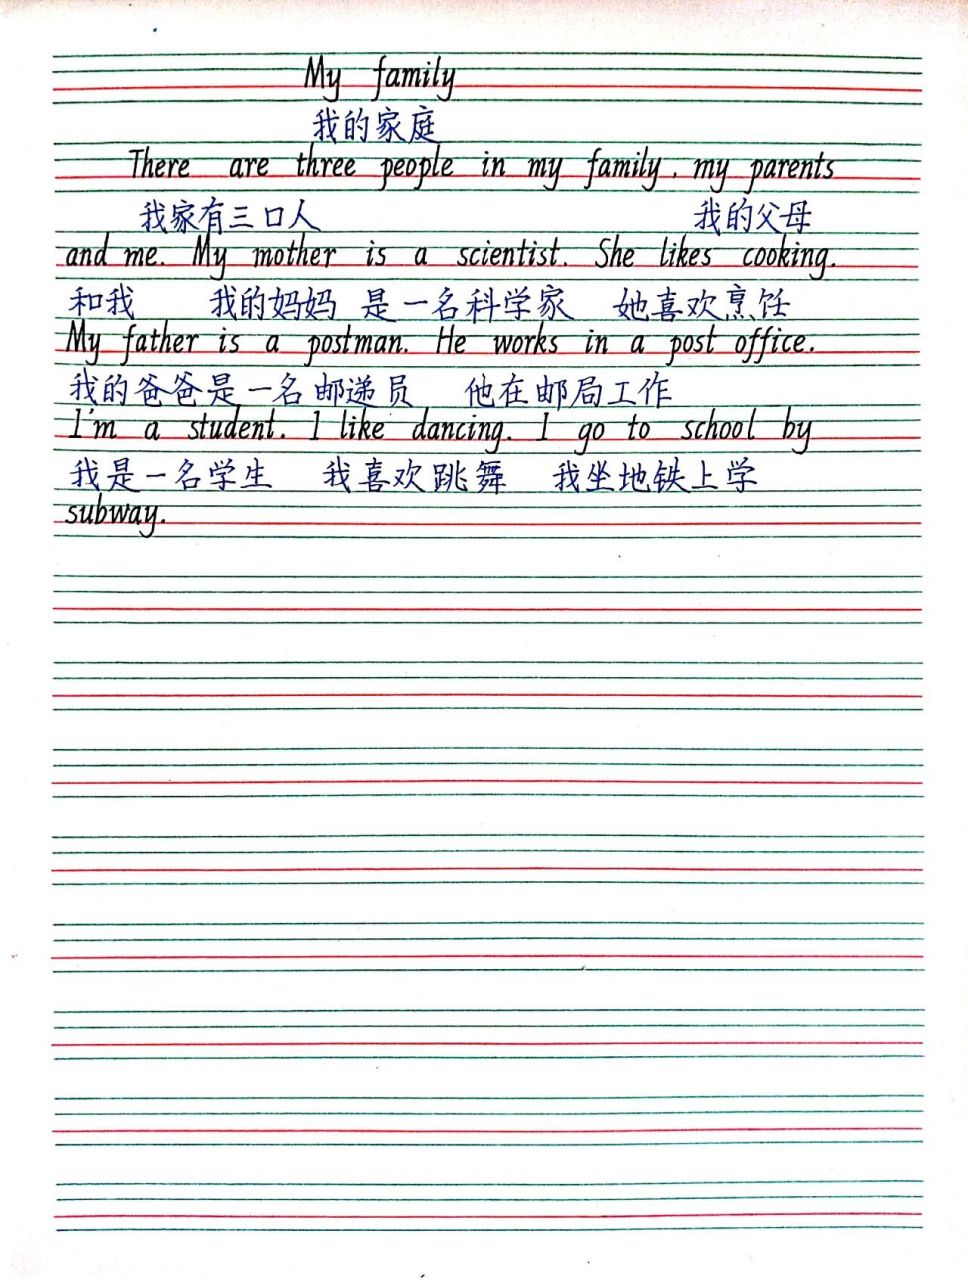 My family
我的家庭
There are three people in my family, my parents
我家有三口人 我的父母
and me. My mother is a scientist. She likes cooking.
和我 我的妈妈 是一名科学家 她喜欢烹饪
My father is a postman. He works in a post office.
我的爸爸是一名邮递员 他在邮局工作
I'm a student. I like dancing. I go to school by
我是一名学生 我喜欢跳舞 我坐地铁上学
subway.